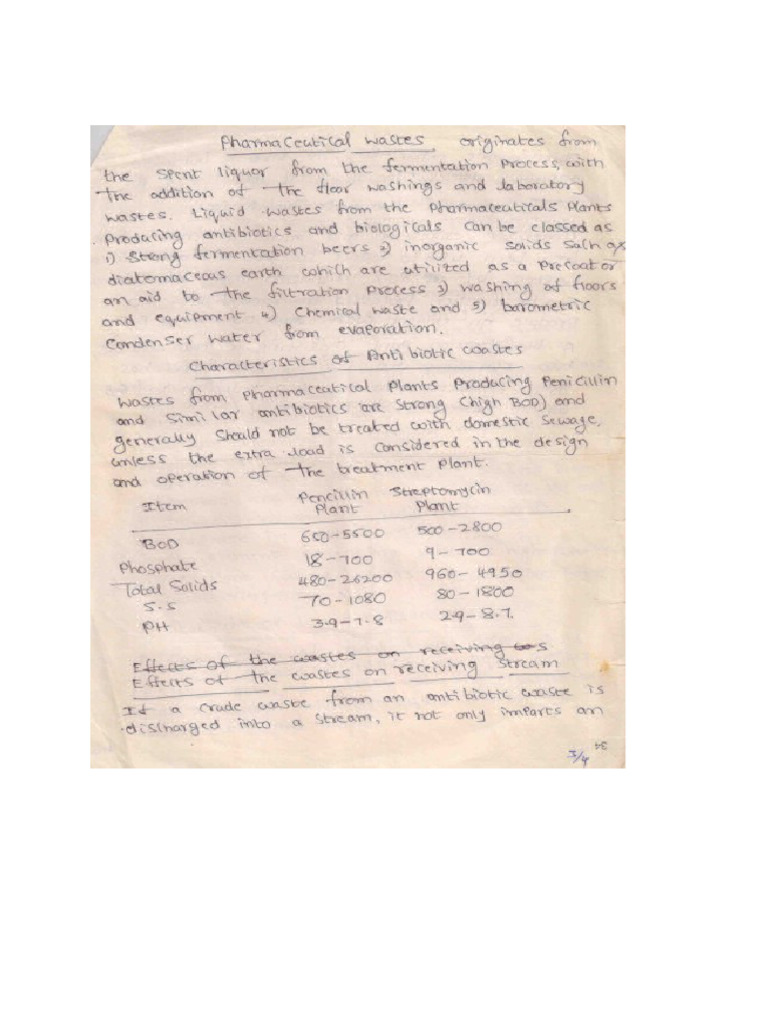 Pharmaceutical wastes, originates from
the spent liquor from the fermentation process, with
the addition of the floor washings and laboratory
wastes. Liquid wastes from the pharmaceuticals plants
producing antibiotics and biologicals can be classed as
1) Strong fermentation beers 2) inorganic solids such as
diatomaceous earth which are utilized as a precoat or
an aid to the filtration process 3) washing of floors
and equipment 4) chemical waste and 5) barometric
condenser water from evaporation.
Characteristics of Antibiotic wastes
wastes from pharmaceutical plants producing Penicillin
and similar antibiotics are strong (high BOD) and
generally should not be treated with domestic sewage,
unless the extra load is considered in the design
and operation of the treatment plant.
Item Pencillin Plant Streptomycin Plant
BOD 650-5500 500-2800
Phosphate 18-700 9-700
Total Solids 480-26200 960-4950
S.S 70-1080 80-1800
PH 3.9-7.8 2.9-8.7.
Effects of the wastes on receiving s
Effects of the wastes on receiving stream
If a crude waste from an antibiotic waste is
discharged into a stream, it not only imparts an
3/4